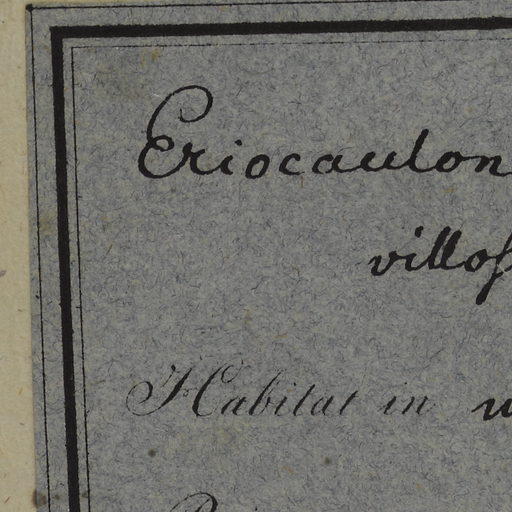 Eriocaulon
villoſ
Habitat in